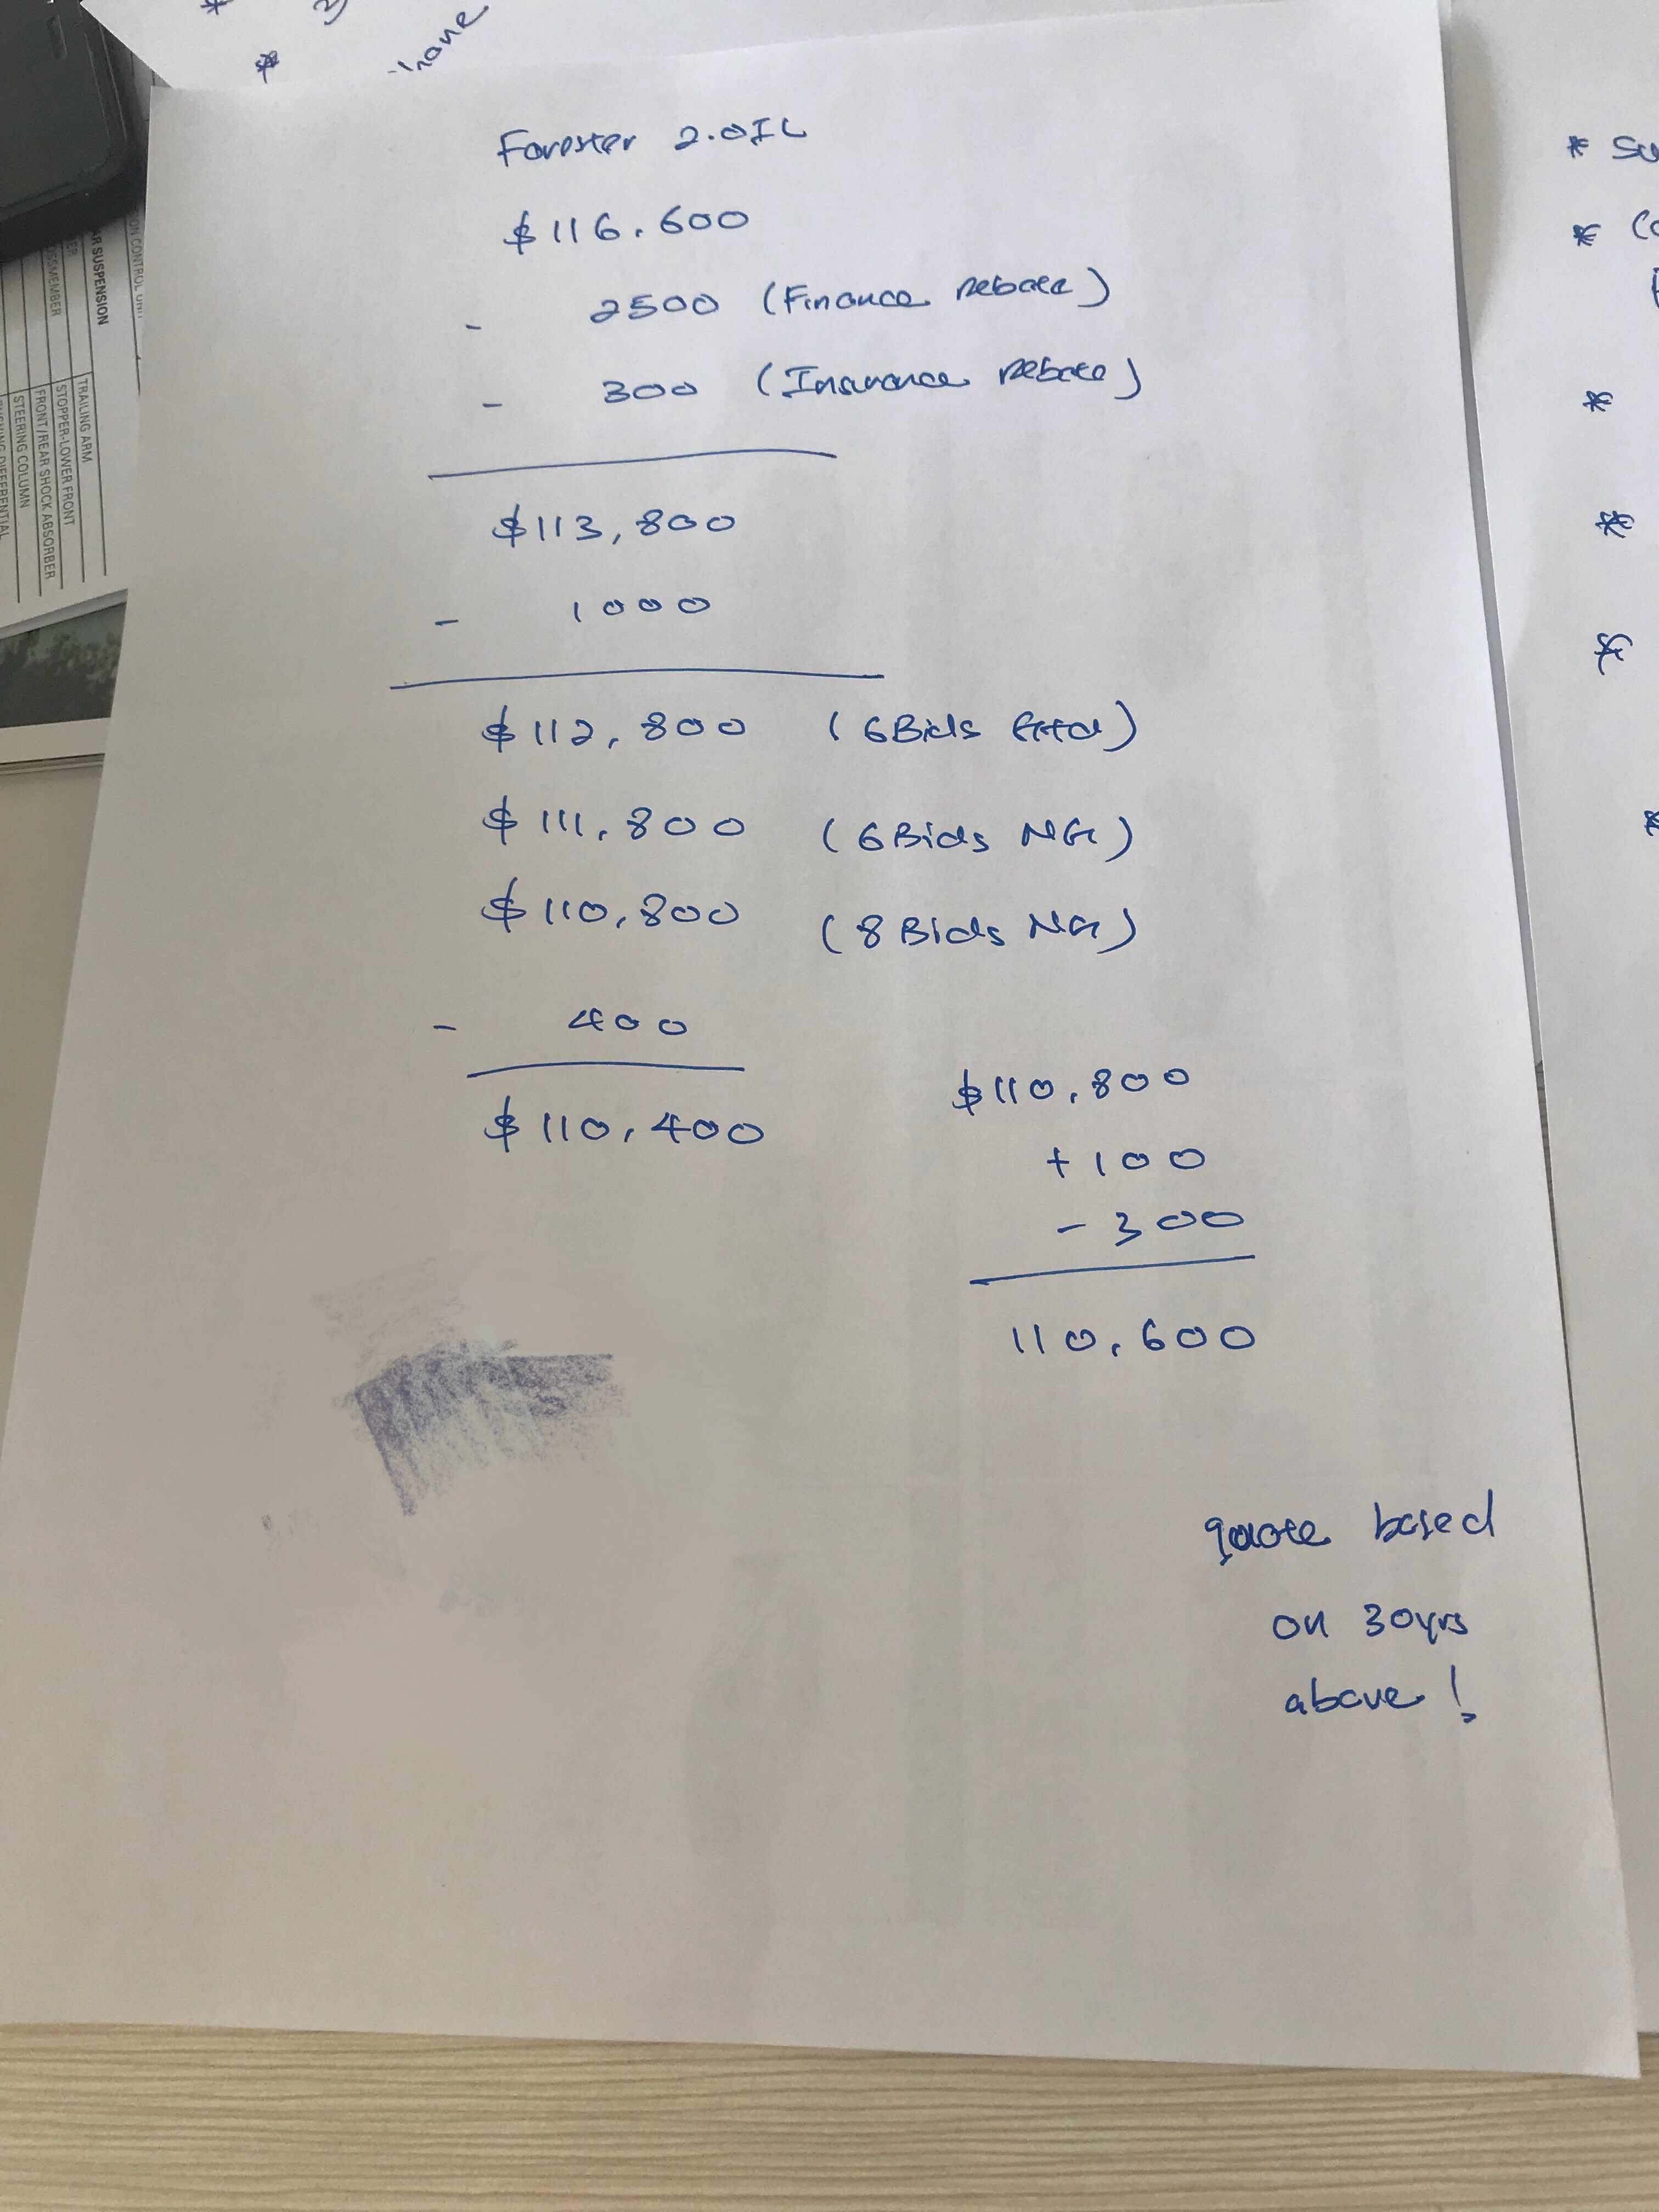 hone
ON CONTROL UNIT
AR SUSPENSION
TRAILING ARM
STOPPER-LOWER FRONT
FRONT/REAR SHOCK ABSORBER
STEERING COLUMN
Forester 2.0IL
$116,600
- 2500 (Finance Rebate)
- 300 (Insurance Rebate)
$113,800
- 1000
$112,800 (6Bids Gtd)
$111,800 (6Bids NG)
$110,800 (8Bids NG)
- 400
$110,400
$110,800
+ 100
- 300
110,600
quote based
on 30yrs
above!
* Su
* Co